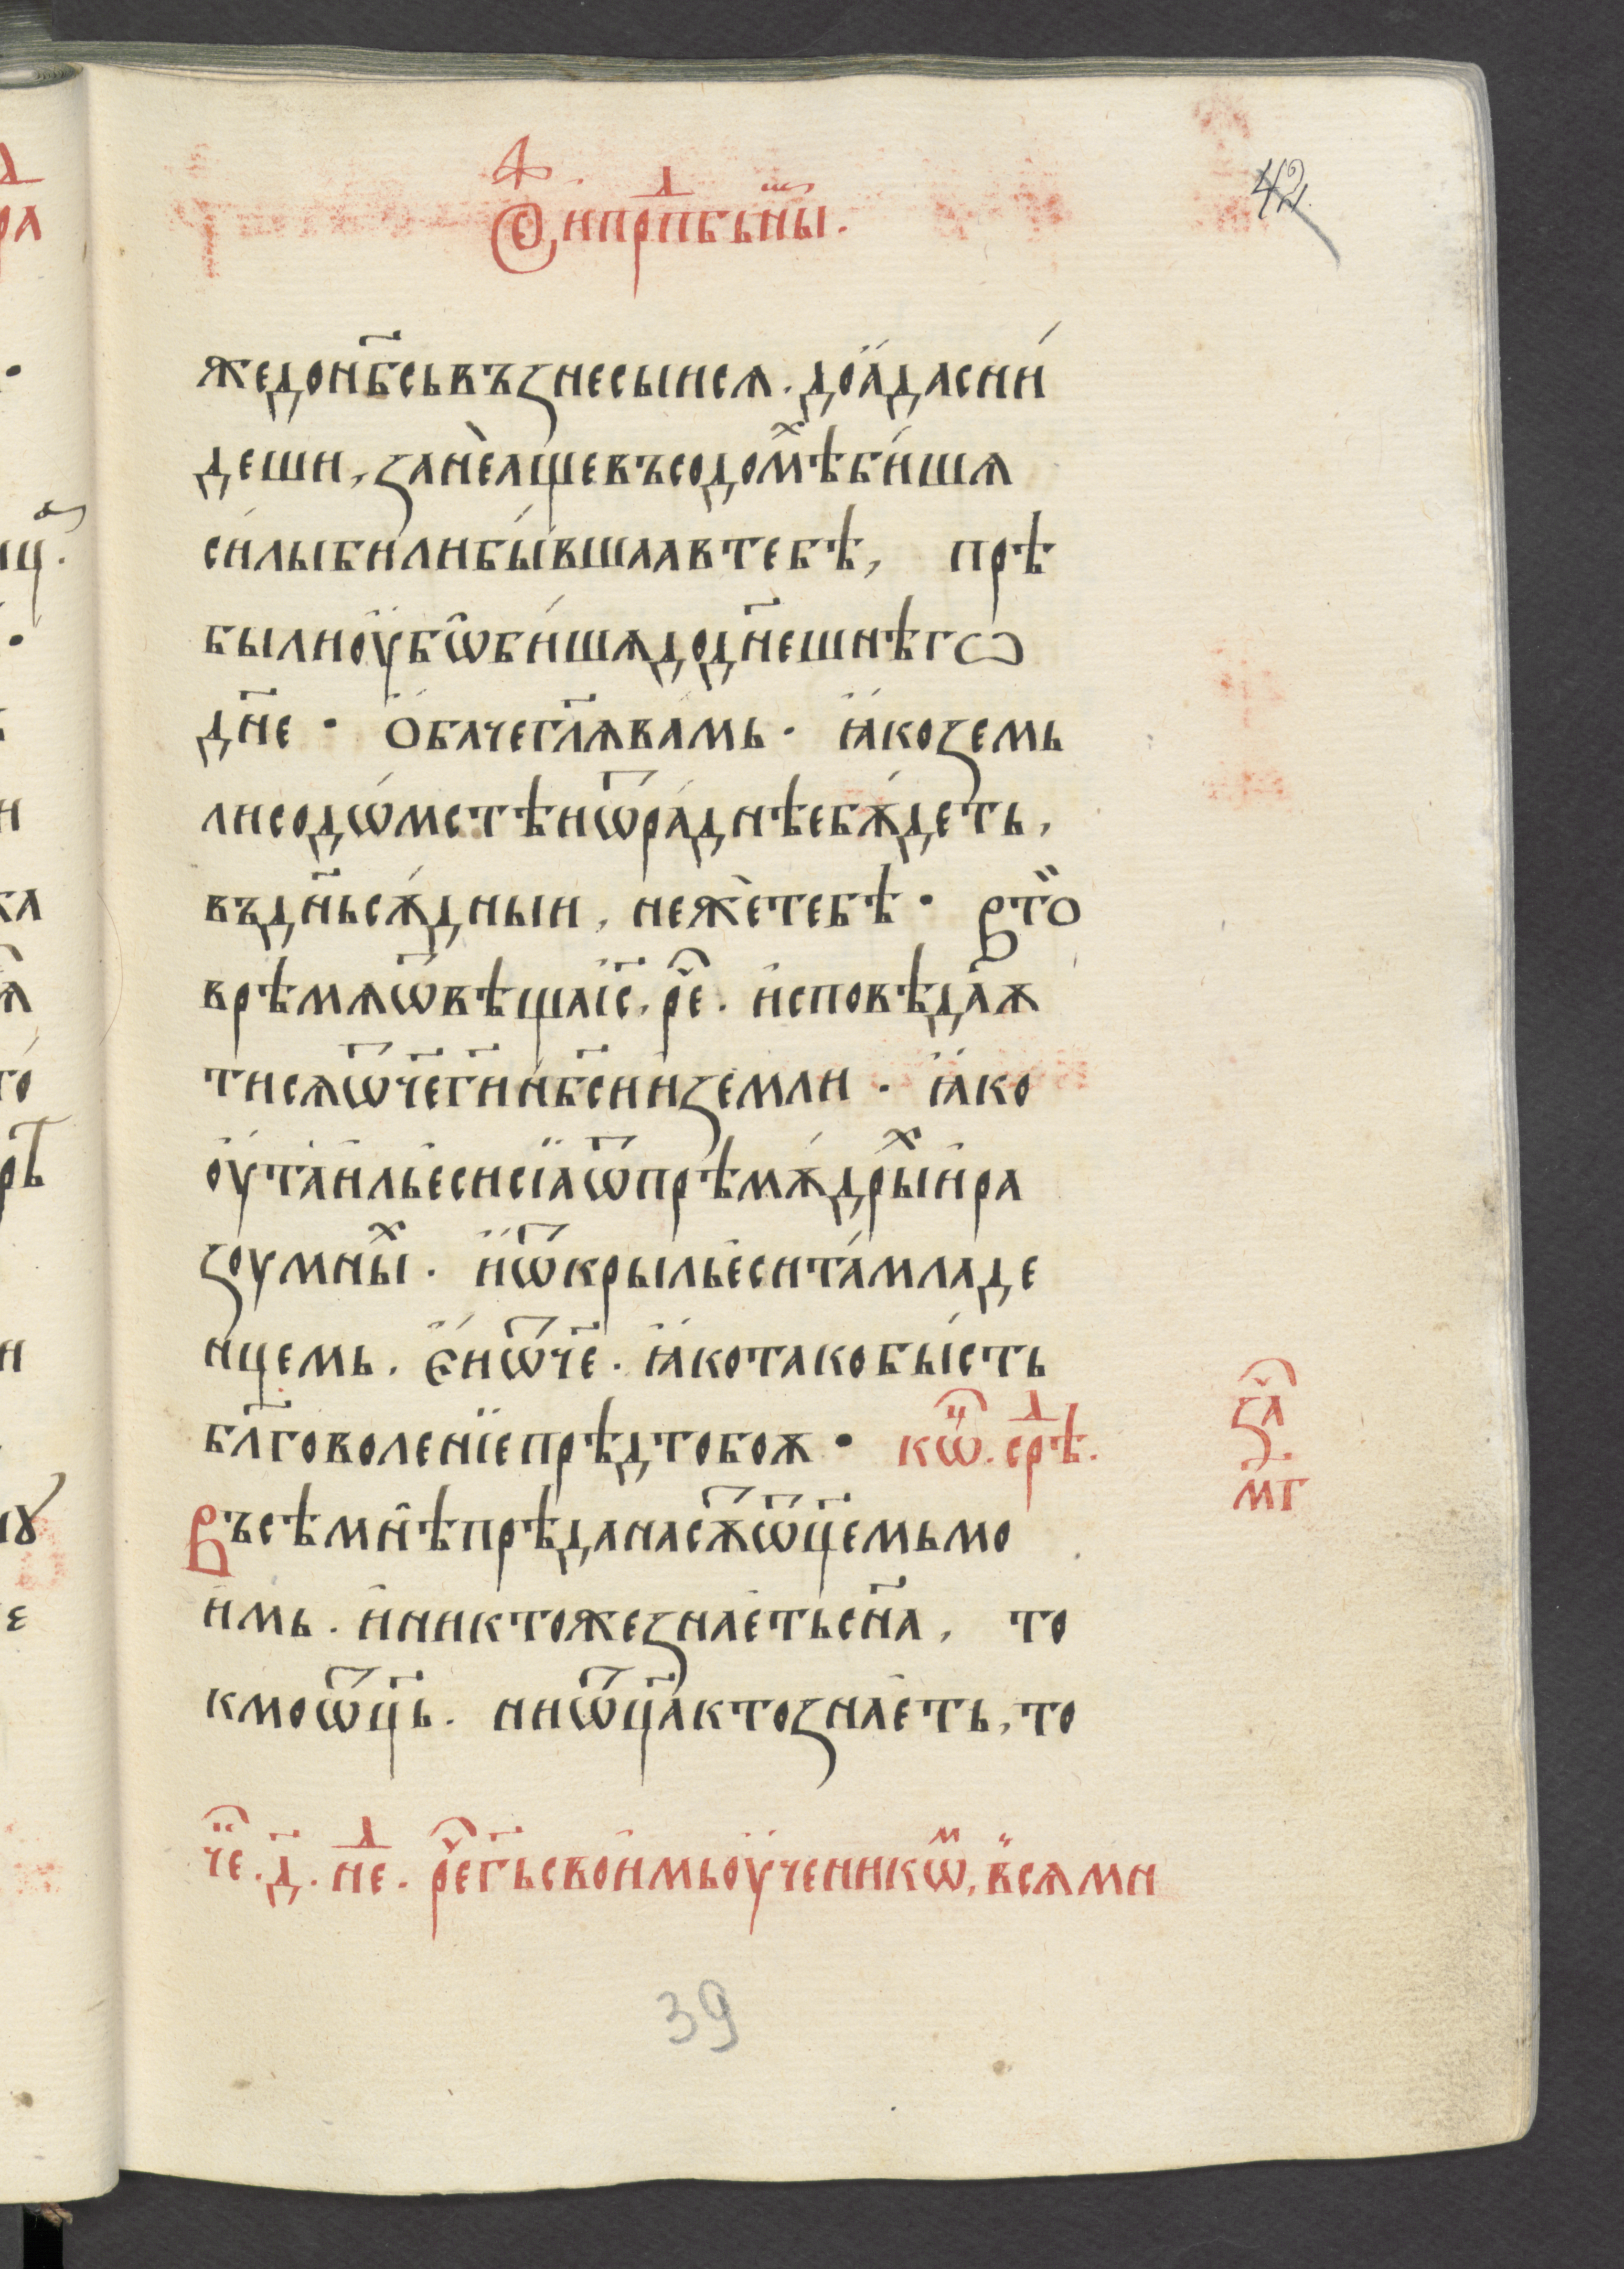 42
Ѳ и прпⷣбьныⷨ.
жедонб҃сьвъꙁнесыисѧ. доа́дасни́
деши, ꙁанѐащевъсодо́мѣⷯби́шѧ
си́лыбилибы́вшаавтебѣ, прѣ
былиоу҆бѡ҆би́шѧдодн҃ешнѣгѡ
дн҃е · О҆бачегл҃ѧва́мь · ꙗ҆́коꙁемь
лисодѡ́мстѣиѿра́днѣебѫ́деть,
въдн҃ьсѫ́дныи, нежѐтебѣ · Вто̏
врѣмѧѿвѣщаі҆с҃. реⷱ҇. и҆сповѣдаѫ
тисѧѿч҃ег҃инб҃сииꙁемли · ꙗ҆́ко
оу҆таи҆лье҆сисїаѿпрѣмѫ́дрыⷯи҆ра
ꙁоумныⷯ · и҆ѿкрыльє҆сита́младе
нцемь. Е҆́иѿч҃е · ꙗ҆́котакобы́сть
бл҃говоленїепрѣдтобоѫ · кѡⷩ҇. среⷣ.
Въсѣмнѣпрѣданасѫѿц҃емьмо
и҆мь. и҆никтожеꙁнае҆тьсн҃а, то
кмоѿц҃ь. ниѿц҃актоꙁнае҆ть, то
ꙁаⷱ҇.
м҃г
чеⷮ. д҃. неⷣ. реⷱ҇г҃ьсвои҆мьоу҆ченикѡⷨ, всѧми
39